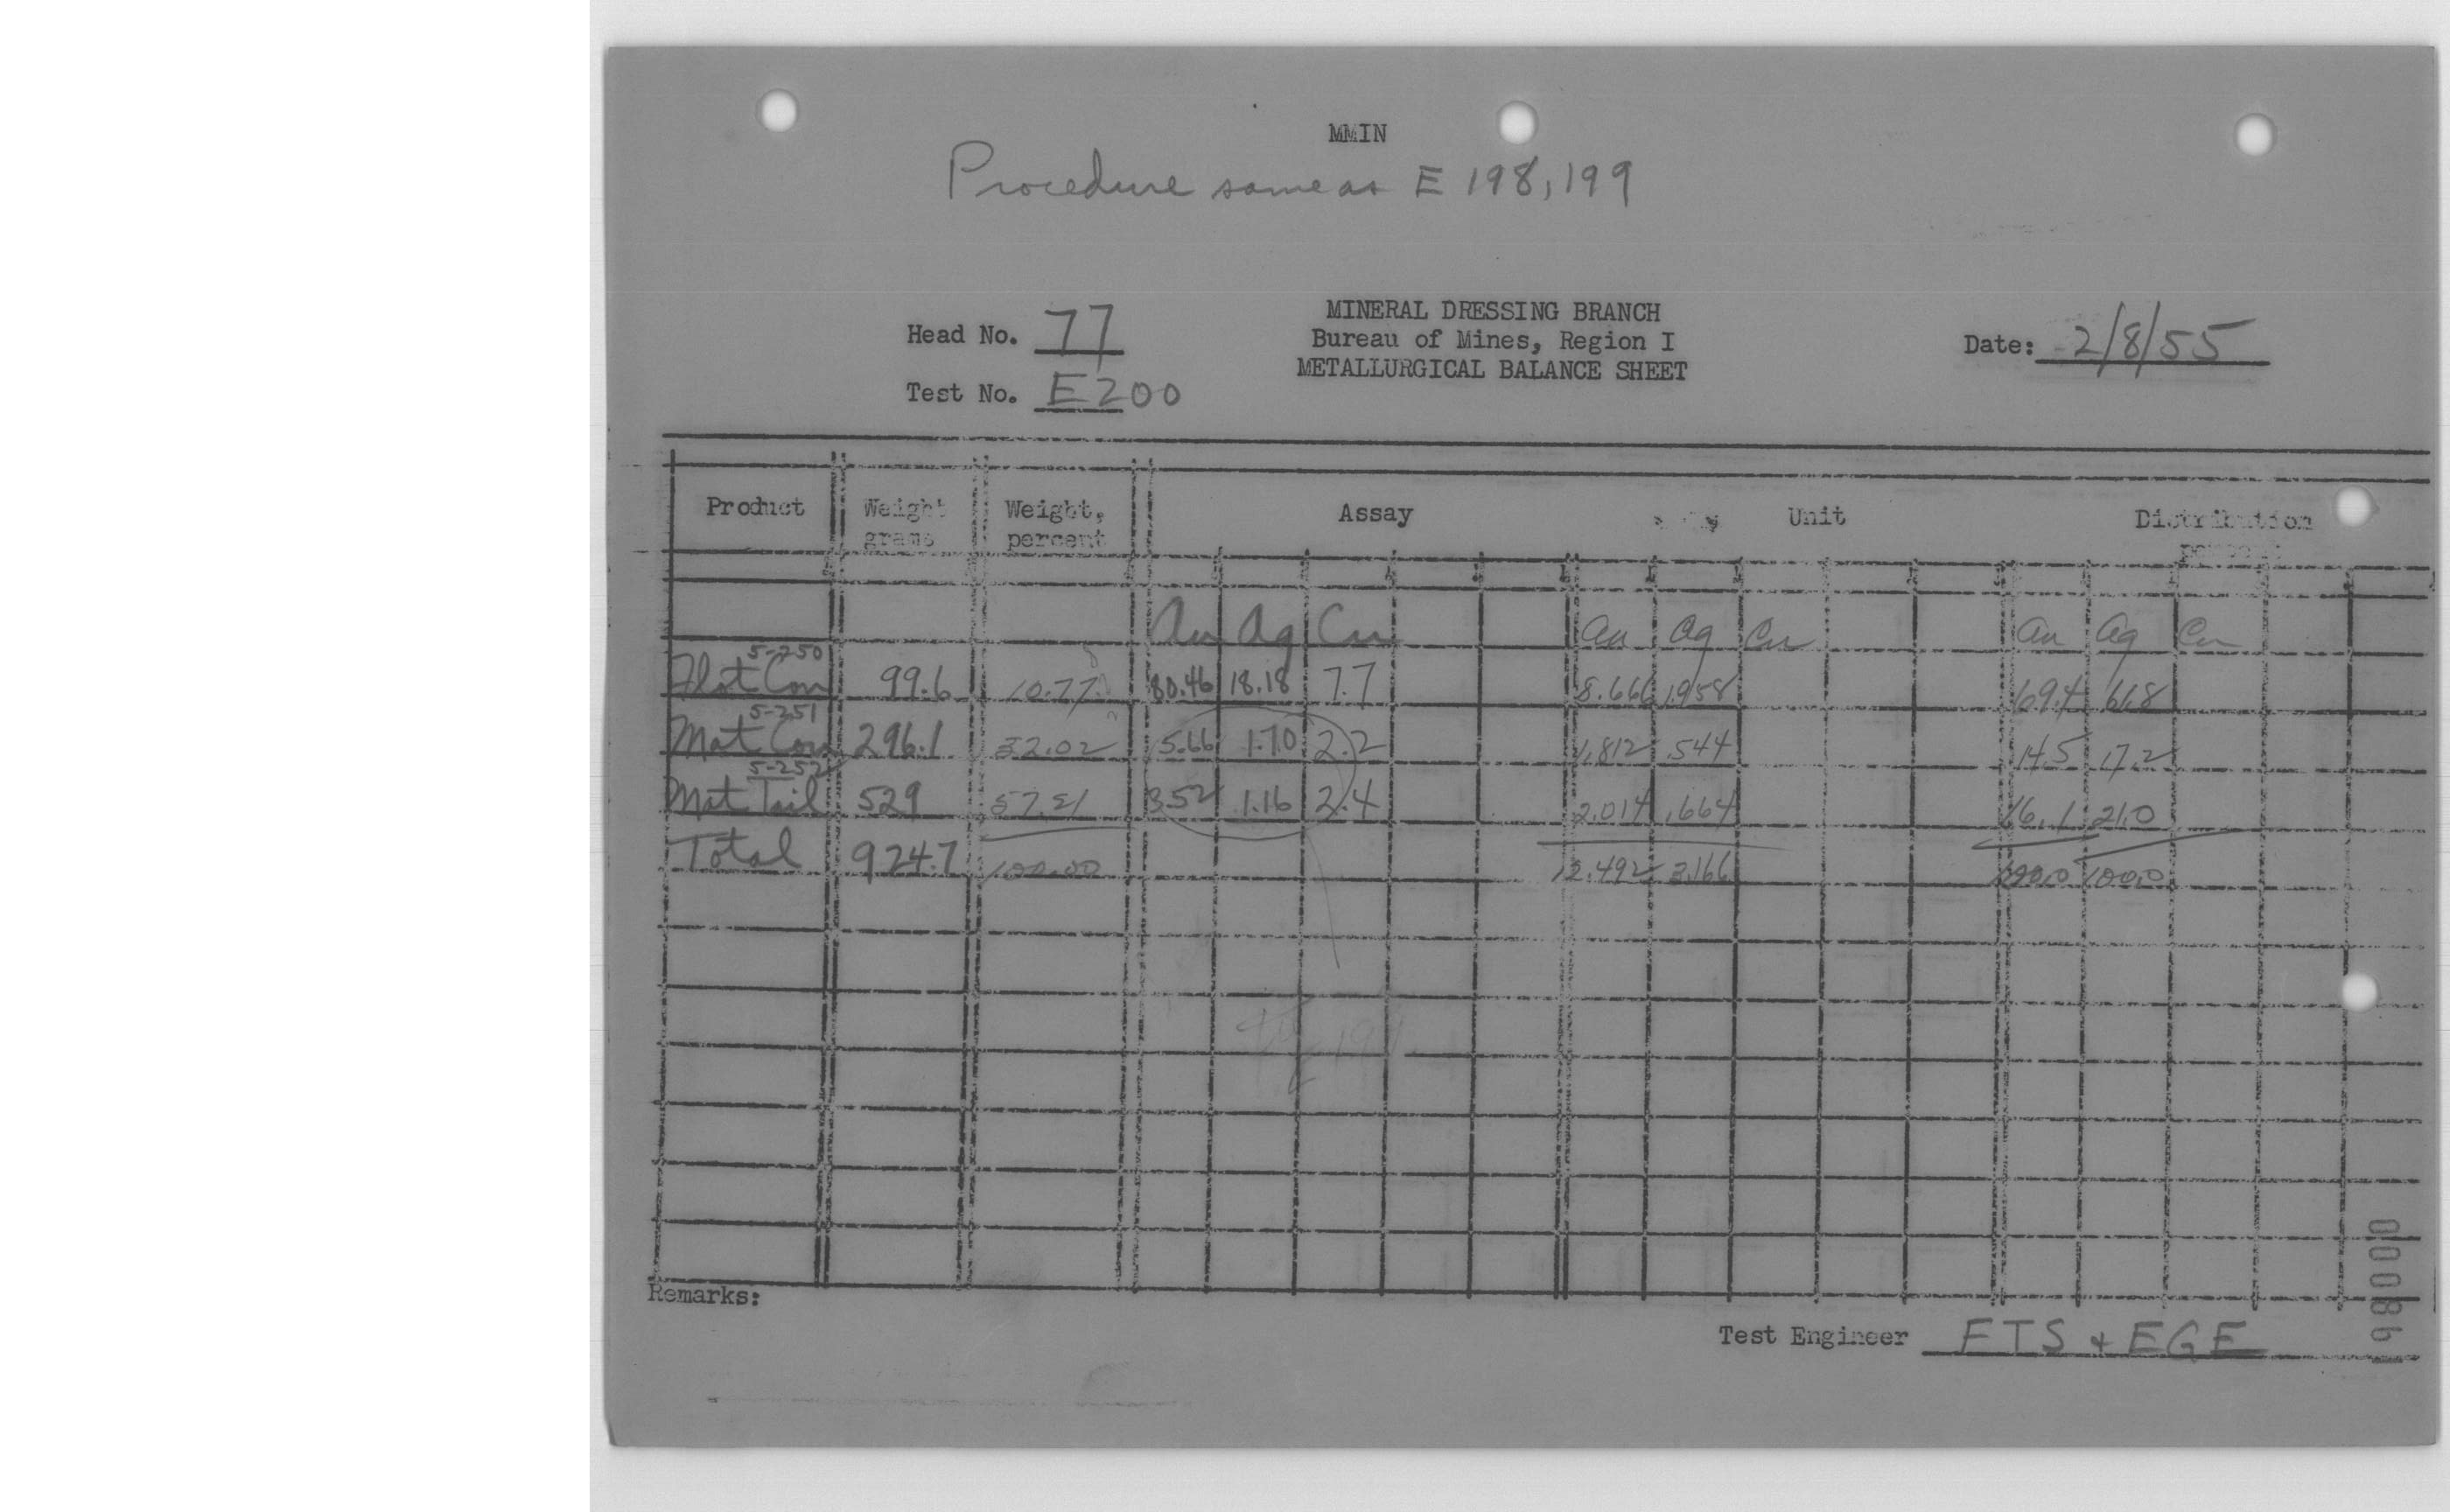 MMIN
Procedure same as E 198, 199
MINERAL DRESSING BRANCH
Head No. 77 Bureau of Mines, Region I Date: 2/8/55
METALLURGICAL BALANCE SHEET
Test No. E200
Product Weight grams Weight, percent Assay Unit Distribution percent
Au Ag Cu Au Ag Cu Au Ag Cu
5-250
Flot Con 99.6 10.77 80.46 18.18 7.7 8.666 1.958 69.4 61.8
5-251
Mat Con 296.1 32.02 5.66 1.70 2.2 1.812 .544 14.5 17.2
5-252
Mat Tail 529 57.21 3.52 1.16 2.4 2.014 .664 16.1 21.0
Total 924.7 100.00 12.492 3.166 100.0 100.0
Remarks:
Test Engineer FTS + EGE